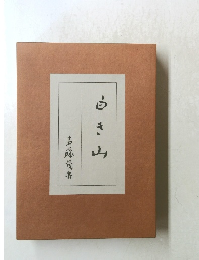 白き山
斎藤茂吉